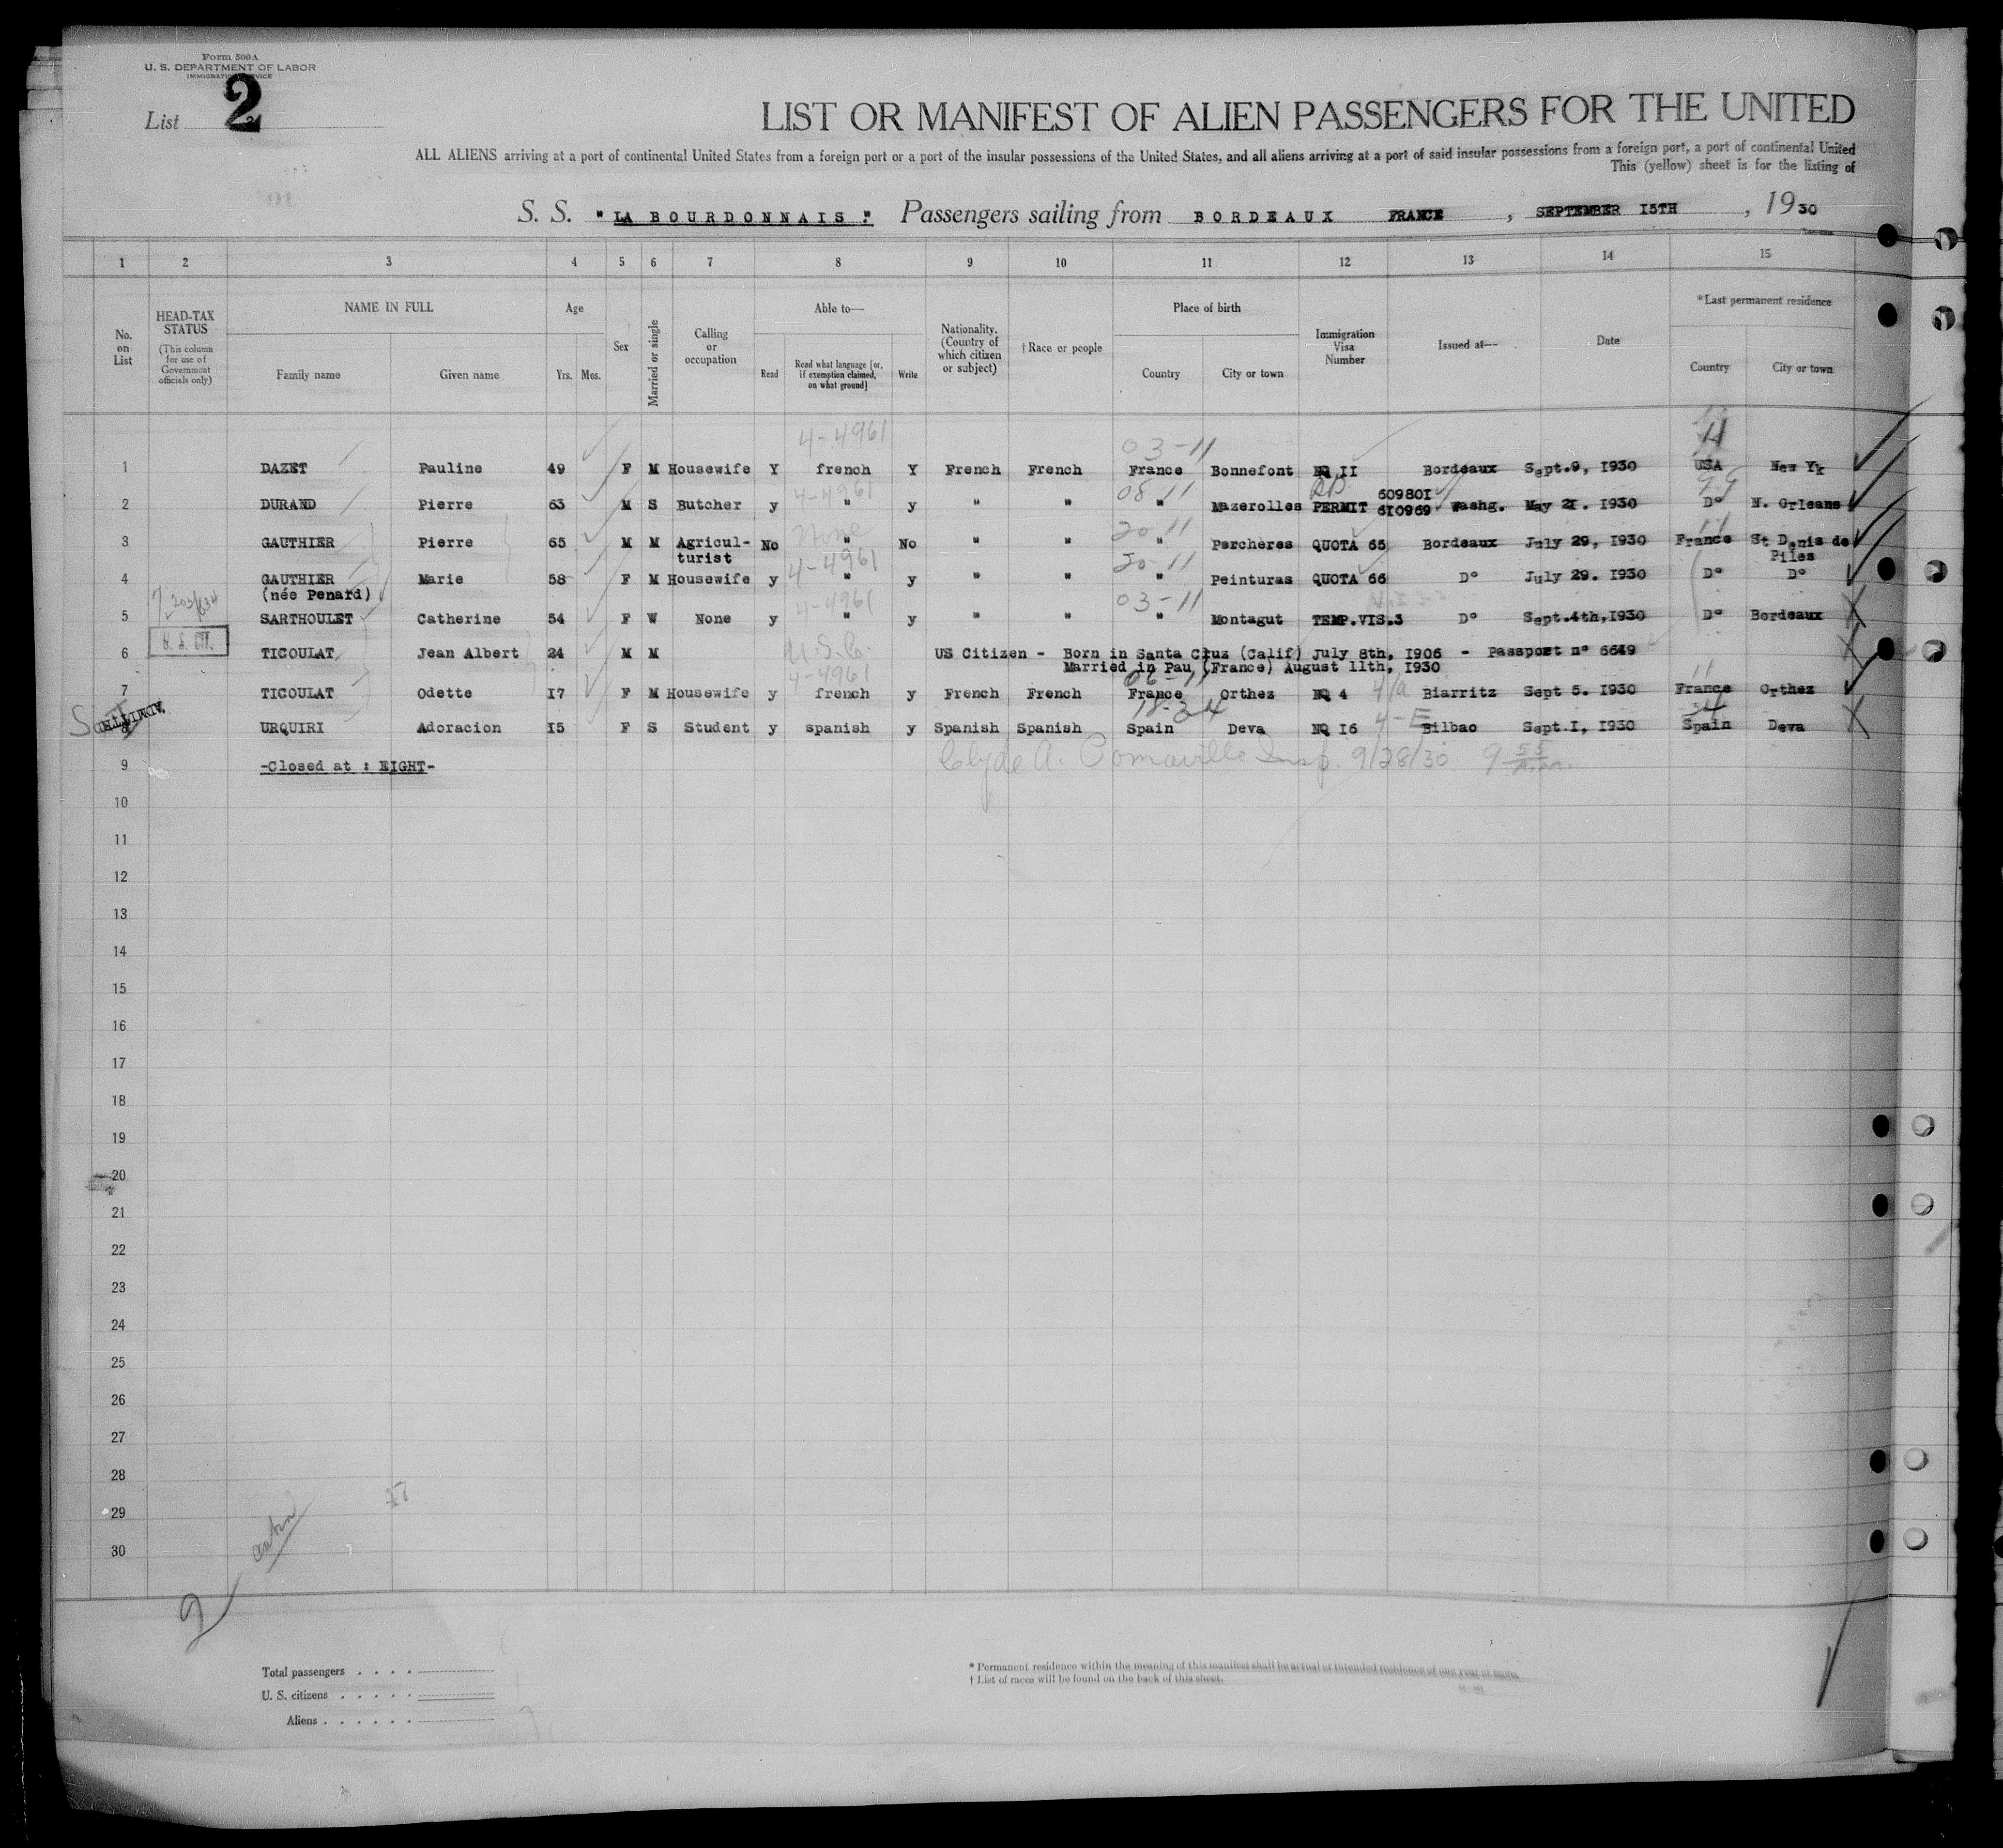 Form 500A
U. S. DEPARTMENT OF LABOR
IMMIGRATION SERVICE
List 2
LIST OR MANIFEST OF ALIEN PASSENGERS FOR THE UNITED
ALL ALIENS arriving at a port of continental United States from a foreign port or a port of the insular possessions of the United States, and all aliens arriving at a port of said insular possessions from a foreign port, a port of continental United
This (yellow) sheet is for the listing of
S. S. "LA BOURDONNAIS" Passengers sailing from BORDEAUX FRANCE, SEPTEMBER 15TH, 1930
1 2 3 4 5 6 7 8 9 10 11 12 13 14 15
No. on List
HEAD-TAX STATUS
(This column for use of Government officials only)
NAME IN FULL
Family name Given name
Age
Yrs. Mos.
Sex
Married or single
Calling or occupation
Able to—
Read
Read what language [or, if exemption claimed, on what ground]
Write
Nationality. (Country of which citizen or subject)
†Race or people
Place of birth
Country City or town
Immigration Visa Number
Issued at—
Date
*Last permanent residence
Country City or town
4-4961 03-11 11
1 DAZET Pauline 49 F M Housewife Y french Y French French France Bonnefont NQ II Bordeaux Sept.9, I930 USA New Yk
4-4961 08-11 99
2 DURAND Pierre 63 M S Butcher y " y " " " Mazerolles PERMIT 609801 610969 Washg. May 21. I930 D° N. Orleans
None 20-11 11
3 GAUTHIER Pierre 65 M M Agricul-turist No " No " " " Perchères QUOTA 65 Bordeaux July 29, I930 France St Denis de Piles
4-4961 20-11
4 GAUTHIER Marie 58 F M Housewife y " y " " " Peinturas QUOTA 66 D° July 29. I930 D° D°
(née Penard)
4-4961 03-11
5 SARTHOULET Catherine 54 F W None y " y " " " Montagut TEMP.VIS.3 D° Sept.4th,I930 D° Bordeaux
U.S.C.
6 TICOULAT Jean Albert 24 M M US Citizen - Born in Santa Cruz (Calif) July 8th, I906 - Passport n° 6649
Married in Pau (France) August 11th, I930
4-4961 06-11 11
7 TICOULAT Odette I7 F M Housewife y french y French French France Orthez NQ 4 Biarritz Sept 5. I930 France Orthez
ADMITTED
18-34 34
8 URQUIRI Adoracion I5 F S Student y spanish y Spanish Spanish Spain Deva NQ I6 4-E Bilbao Sept.I, I930 Spain Deva
9 -Closed at : EIGHT-
Clyde A. Pomaville Insp. 9/28/30 9 55 a.m.
10
11
12
13
14
15
16
17
18
19
20
21
22
23
24
25
26
27
28
29
30
2
Total passengers . . . .
U. S. citizens . . . . .
Aliens . . . . . .
* Permanent residence within the meaning of this manifest shall be actual or intended residence of one year or more.
† List of races will be found on the back of this sheet.